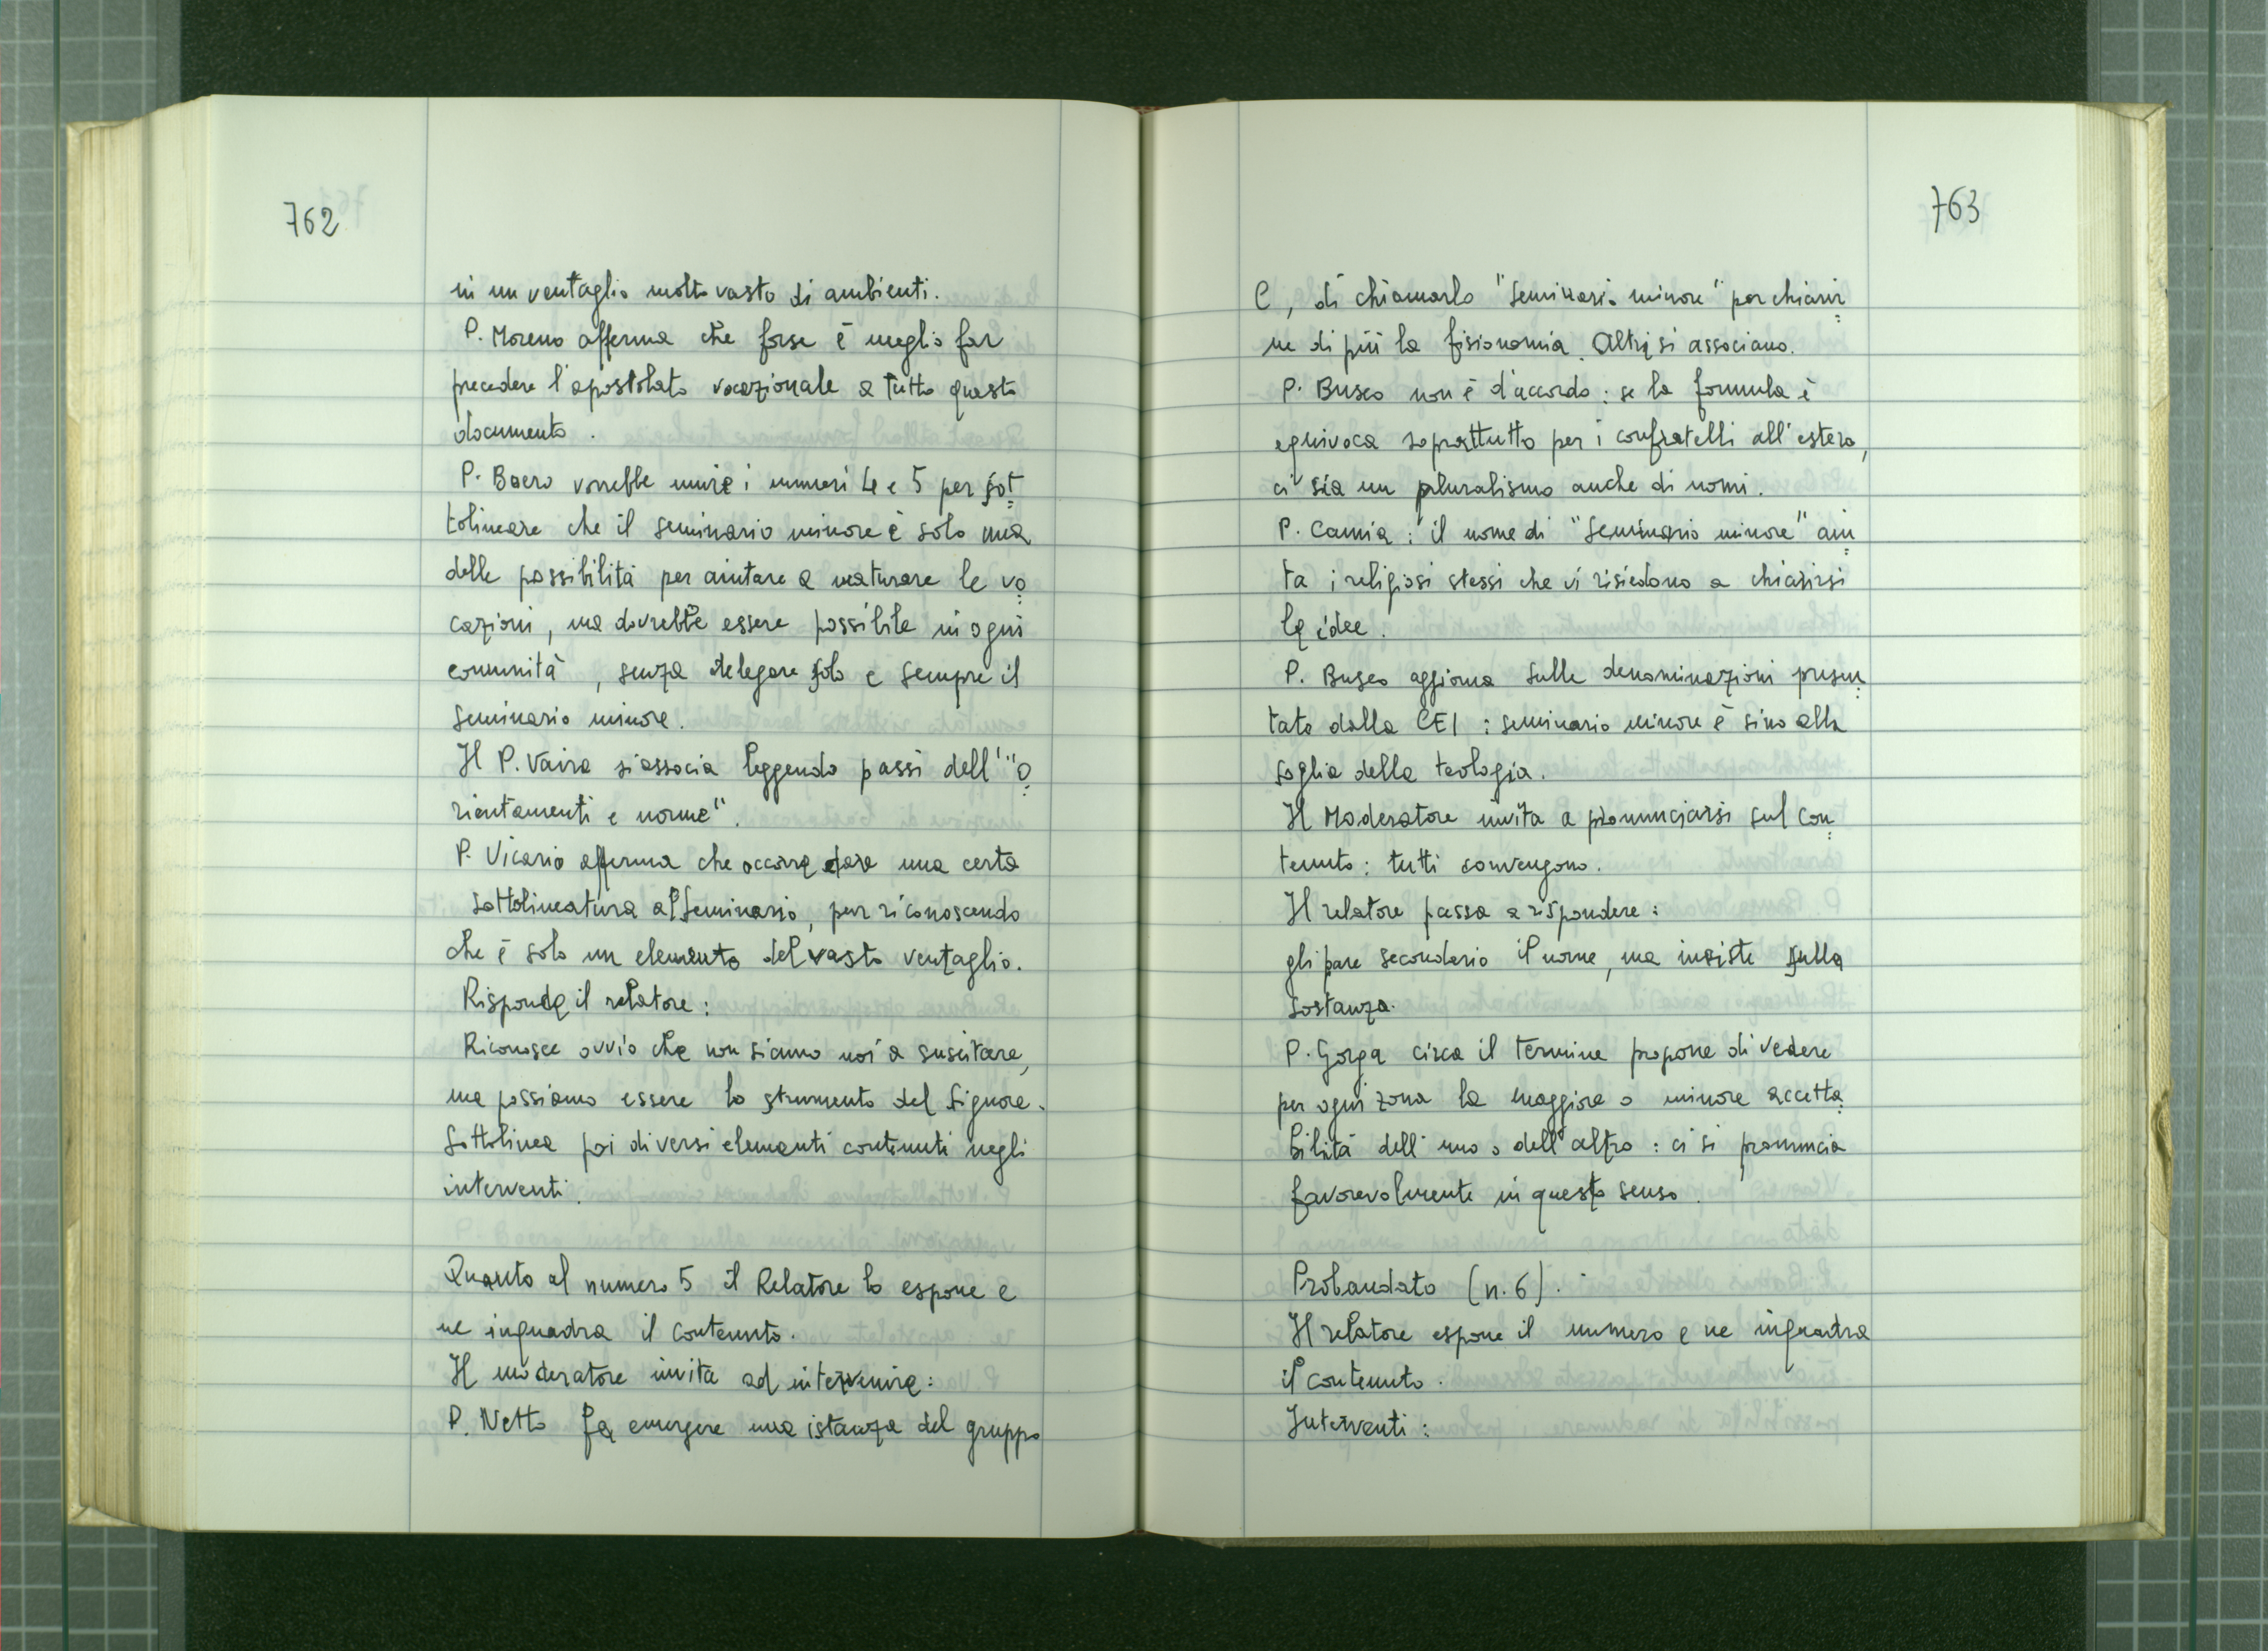 762
in un ventaglio molto vasto di ambienti.
P. Moreno afferma che forse è meglio far
precedere l'apostolato vocazionale a tutto questo
documento.
P. Boero vorrebbe unire i numeri 4 e 5 per sot=
tolineare che il seminario minore è solo una
delle possibilità per aiutare a maturare le vo=
cazioni, ma dovrebbe essere possibile in ogni
comunità, senza delegare solo e sempre il
seminario minore.
Il P. Vaira si associa leggendo passi dell'"O=
rientamenti e norme".
P. Vicario afferma che occorre dare una certa
sottolineatura al Seminario, pur riconoscendo
che è solo un elemento del vasto ventaglio.
Risponde il relatore:
Riconosce ovvio che non siamo noi a suscitare,
ma possiamo essere lo strumento del Signore.
Sottolinea poi diversi elementi contenuti negli
interventi.
Quanto al numero 5 il Relatore lo espone e
ne inquadra il contenuto.
Il moderatore invita ad intervenire:
P. Netto fa emergere una istanza del gruppo
763
C, di chiamarlo "Seminario minore" per chiarir=
ne di più la fisionomia. Altri si associano.
P. Busco non è d'accordo: se la formula è
equivoca soprattutto per i confratelli all'estero,
ci sia un pluralismo anche di nomi.
P. Camia: il nome di "Seminario minore" aiu=
ta i religiosi stessi che vi risiedono a chiarirsi
le idee.
P. Busco aggiorna sulle denominazioni presen=
tate dalla CEI: seminario minore è sino alla
soglia della teologia.
Il Moderatore invita a pronunciarsi sul con=
tenuto: tutti convengono.
Il relatore passa a rispondere:
gli pare secondario il nome, ma insiste sulla
sostanza.
P. Gorga circa il termine propone di vedere
per ogni zona la maggiore o minore accetta=
bilità dell'uno o dell'altro: ci si pronuncia
favorevolmente in questo senso.
Probandato (n. 6).
Il relatore espone il numero e ne inquadra
il contenuto.
Interventi: